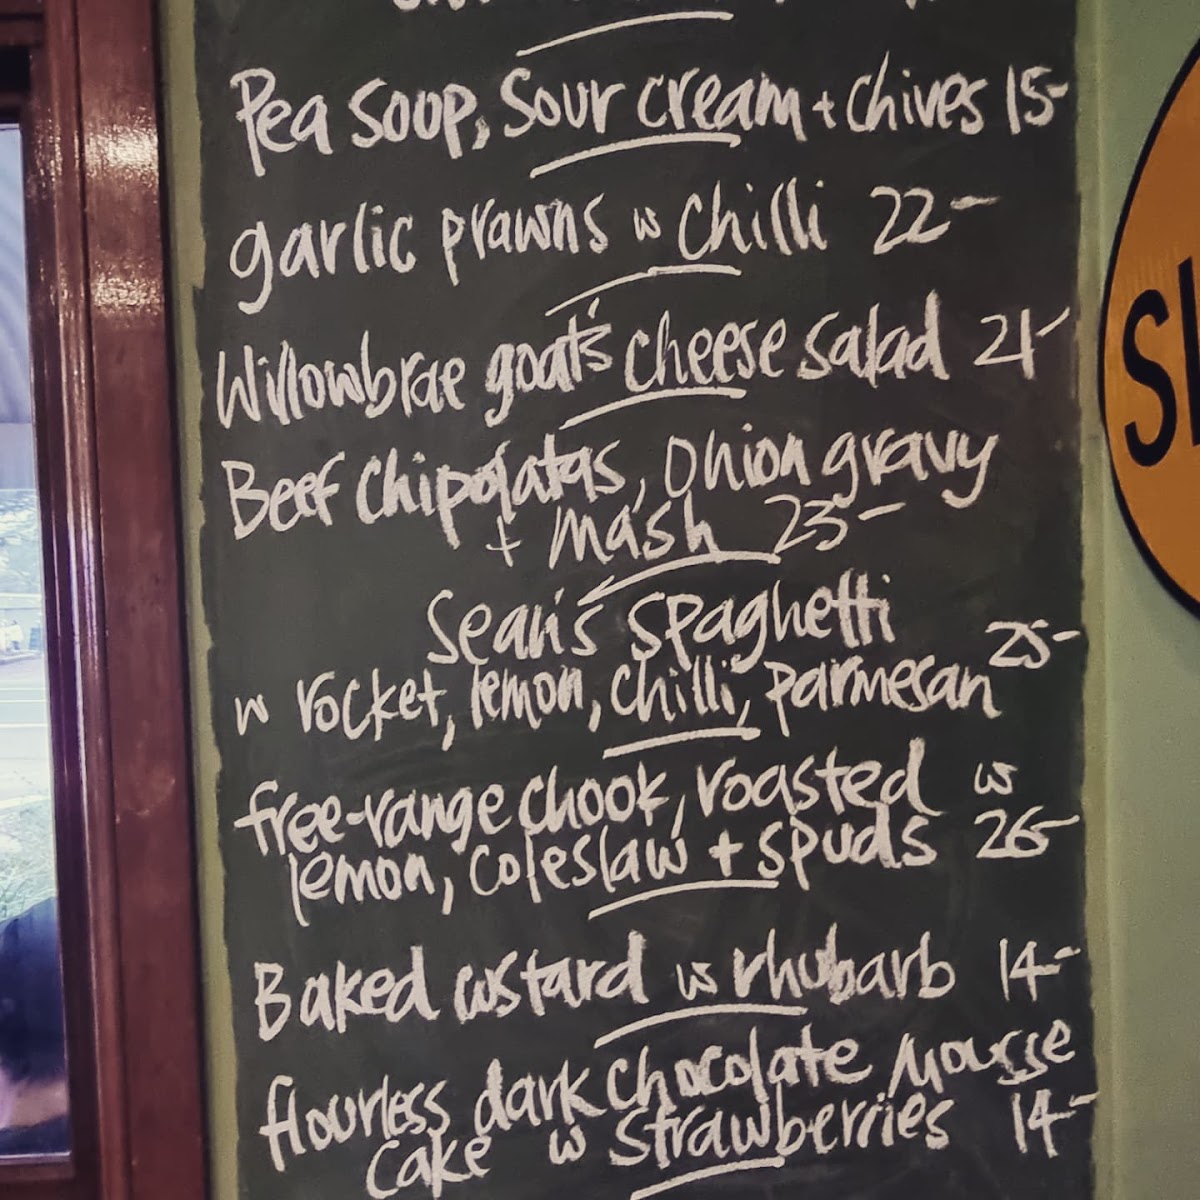 Pea soup, Sour cream + chives 15-
garlic prawns w chilli 22-
Willowbrae goat's cheese salad 21-
Beef chipolatas, onion gravy
+ mash 23-
Sean's spaghetti
w rocket, lemon, chilli, parmesan 25-
free-range chook, roasted w
lemon, coleslaw + spuds 26-
Baked custard w rhubarb 14-
flourless dark chocolate mousse
cake w strawberries 14-